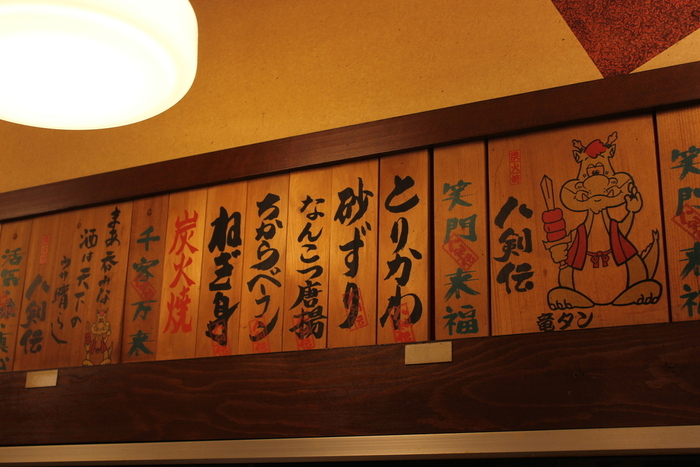 笑門来福
八剣伝
竜タン
笑門来福
とりかわ
砂ずり
なんこつ唐揚
ちからべーコン
ねぎ身
炭火焼
千客万来
まあ呑みな
酒は天下の
ウサ晴らし
八剣伝